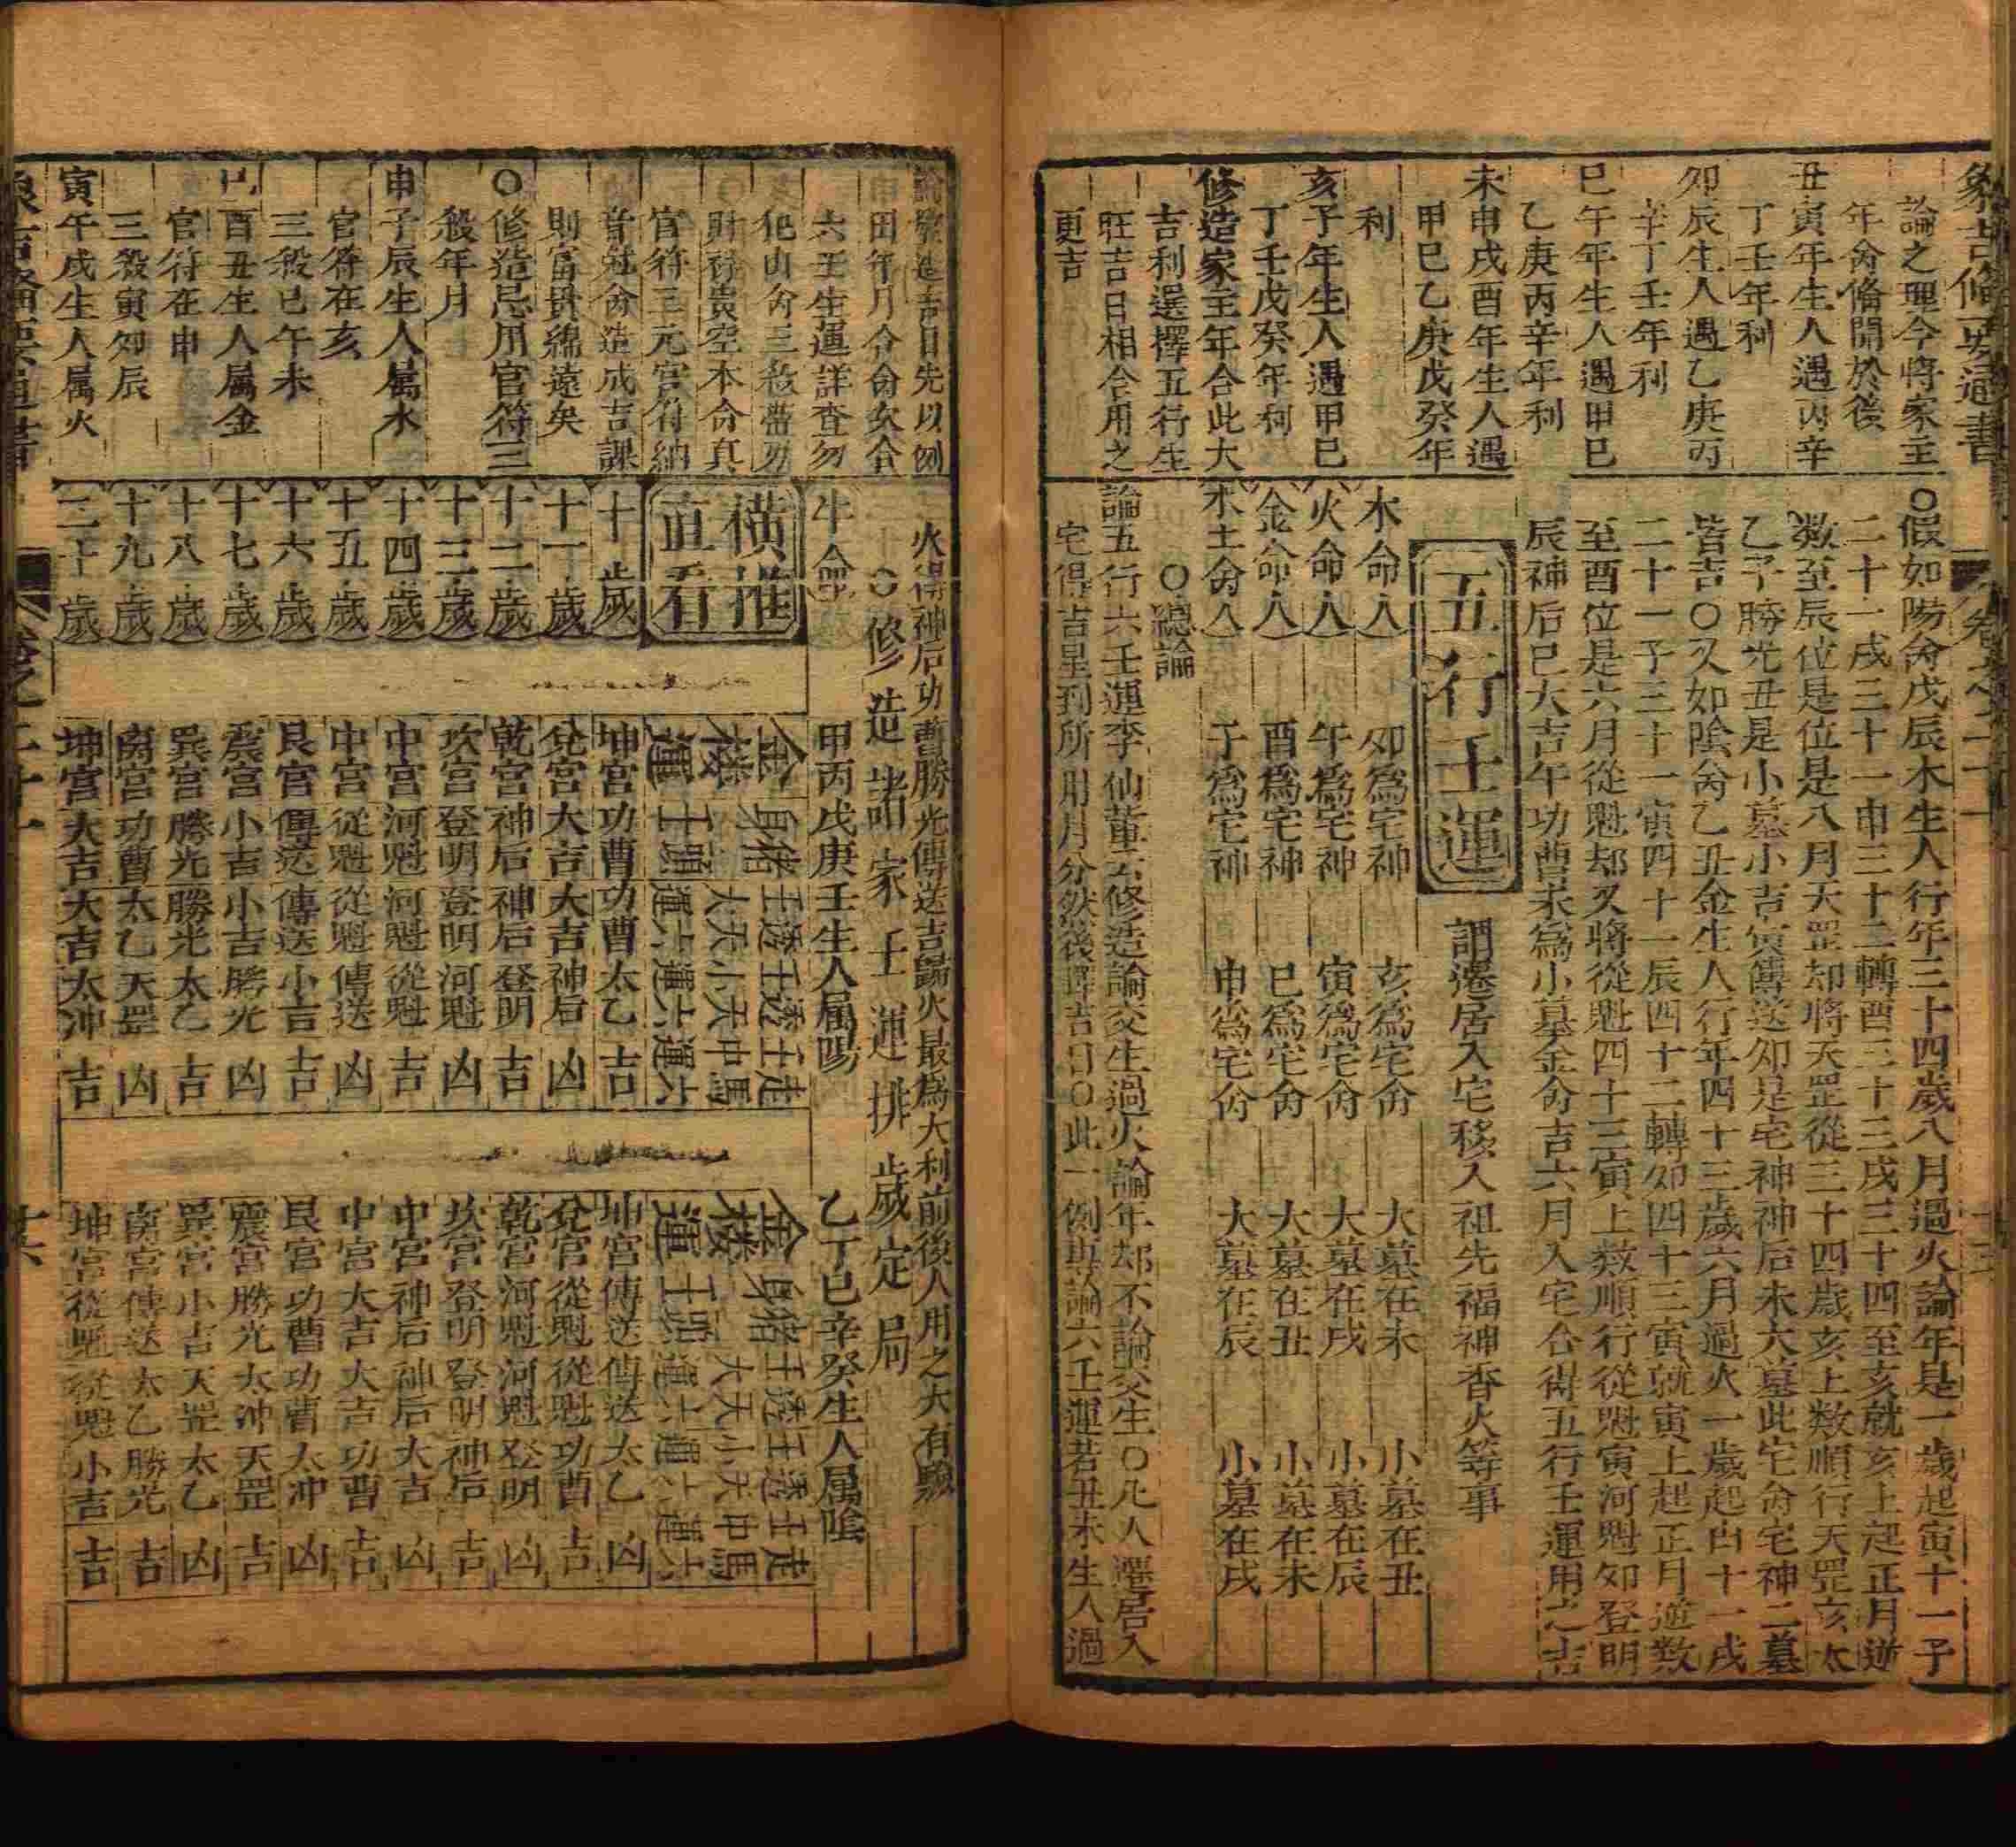 論之理今將家主
年命備開於後
丑寅年生人遇丙辛
丁壬年利
卯辰生人遇乙庚丙
辛丁壬年利
巳午年生人遇甲巳
乙庚丙辛年利
未申戌酉年生人遇
甲巳乙庚戊癸年
利
亥子年生人遇甲巳
丁壬戊癸年利
修造家主年合此大
吉利選擇五行生
旺吉日相合用之
更吉
○假如陽命戊辰木生人行年三十四歲八月過火論年是一歲起寅十一子
二十一戌三十一申三十二轉酉三十三戌三十四至亥就亥上起正月逆
數至辰位是位是八月天罡却將天罡從三十四歲亥上数順行天罡亥太
乙子勝光丑是小墓小吉寅傳送卯是宅神神后未大墓此宅命宅神二墓
皆吉○又如陰命乙丑金生人行年四十三歲六月過火一歲起申十一戌
二十一子三十一寅四十一辰四十二轉卯四十三寅就寅上起正月逆数
至酉位是六月從魁却又將從魁四十三寅上数順行從魁寅河魁卯登明
辰神后巳大吉午功曹未爲小墓金命吉六月入宅合得五行壬運用之吉
五行壬運
謂遷居入宅移入祖先福神香火等事
木命人 卯爲宅神 亥爲宅命 大墓在未 小墓在丑
火命人 午爲宅神 寅爲宅命 大墓在戌 小墓在辰
金命人 酉爲宅神 巳爲宅命 大墓在丑 小墓在未
水土命人 子爲宅神 申爲宅命 大墓在辰 小墓在戌
○總論
論五行六壬運李仙董云修造論交生過火論年却不論交生○凡人遷居入
宅得吉星到所用月分然後擇吉日○此一例與論六壬運若丑未生人過
論修造吉日先以例
田年月合命次合
六壬生運詳查勿
犯山命三殺曹勿
財祿貴空本命真
官符三元宮符納
音冠命造成吉課
則富貴綿遠矣
○修造忌用官符三
殺年月
申子辰生人属水
官符在亥
三殺巳午未
巳酉丑生人属金
官符在申
三殺寅卯辰
寅午戌生人属火
火得神后功曹勝光傳送吉歸火最爲大利前後人用之大有驗
○修造諸家壬運排歲定局
甲丙戊庚壬生人属陽
乙丁巳辛癸生人属陰
橫推
直看
十歲
十一歲
十二歲
十三歲
十四歲
十五歲
十六歲
十七歲
十八歲
十九歲
二十歲
坤宮功曹功曹太乙吉
兌宮大吉大吉神后凶
乾宮神后神后登明吉
坎宮登明登明河魁凶
中宮河魁河魁從魁吉
中宮從魁從魁傳送凶
艮宮傳送傳送小吉吉
震宮小吉小吉勝光凶
巽宮勝光勝光太乙吉
离宮功曹太乙天罡凶
坤宮大吉大吉太冲吉
坤宮傳送傳送太乙凶
兌宮從魁從魁功曹吉
乾宮河魁河魁登明凶
坎宮登明登明神后吉
中宮神后神后大吉凶
中宮大吉大吉功曹吉
艮宮功曹功曹太冲凶
震宮勝光太冲天罡吉
巽宮小吉天罡太乙凶
离宮傳送太乙勝光吉
坤宮從魁從魁小吉吉